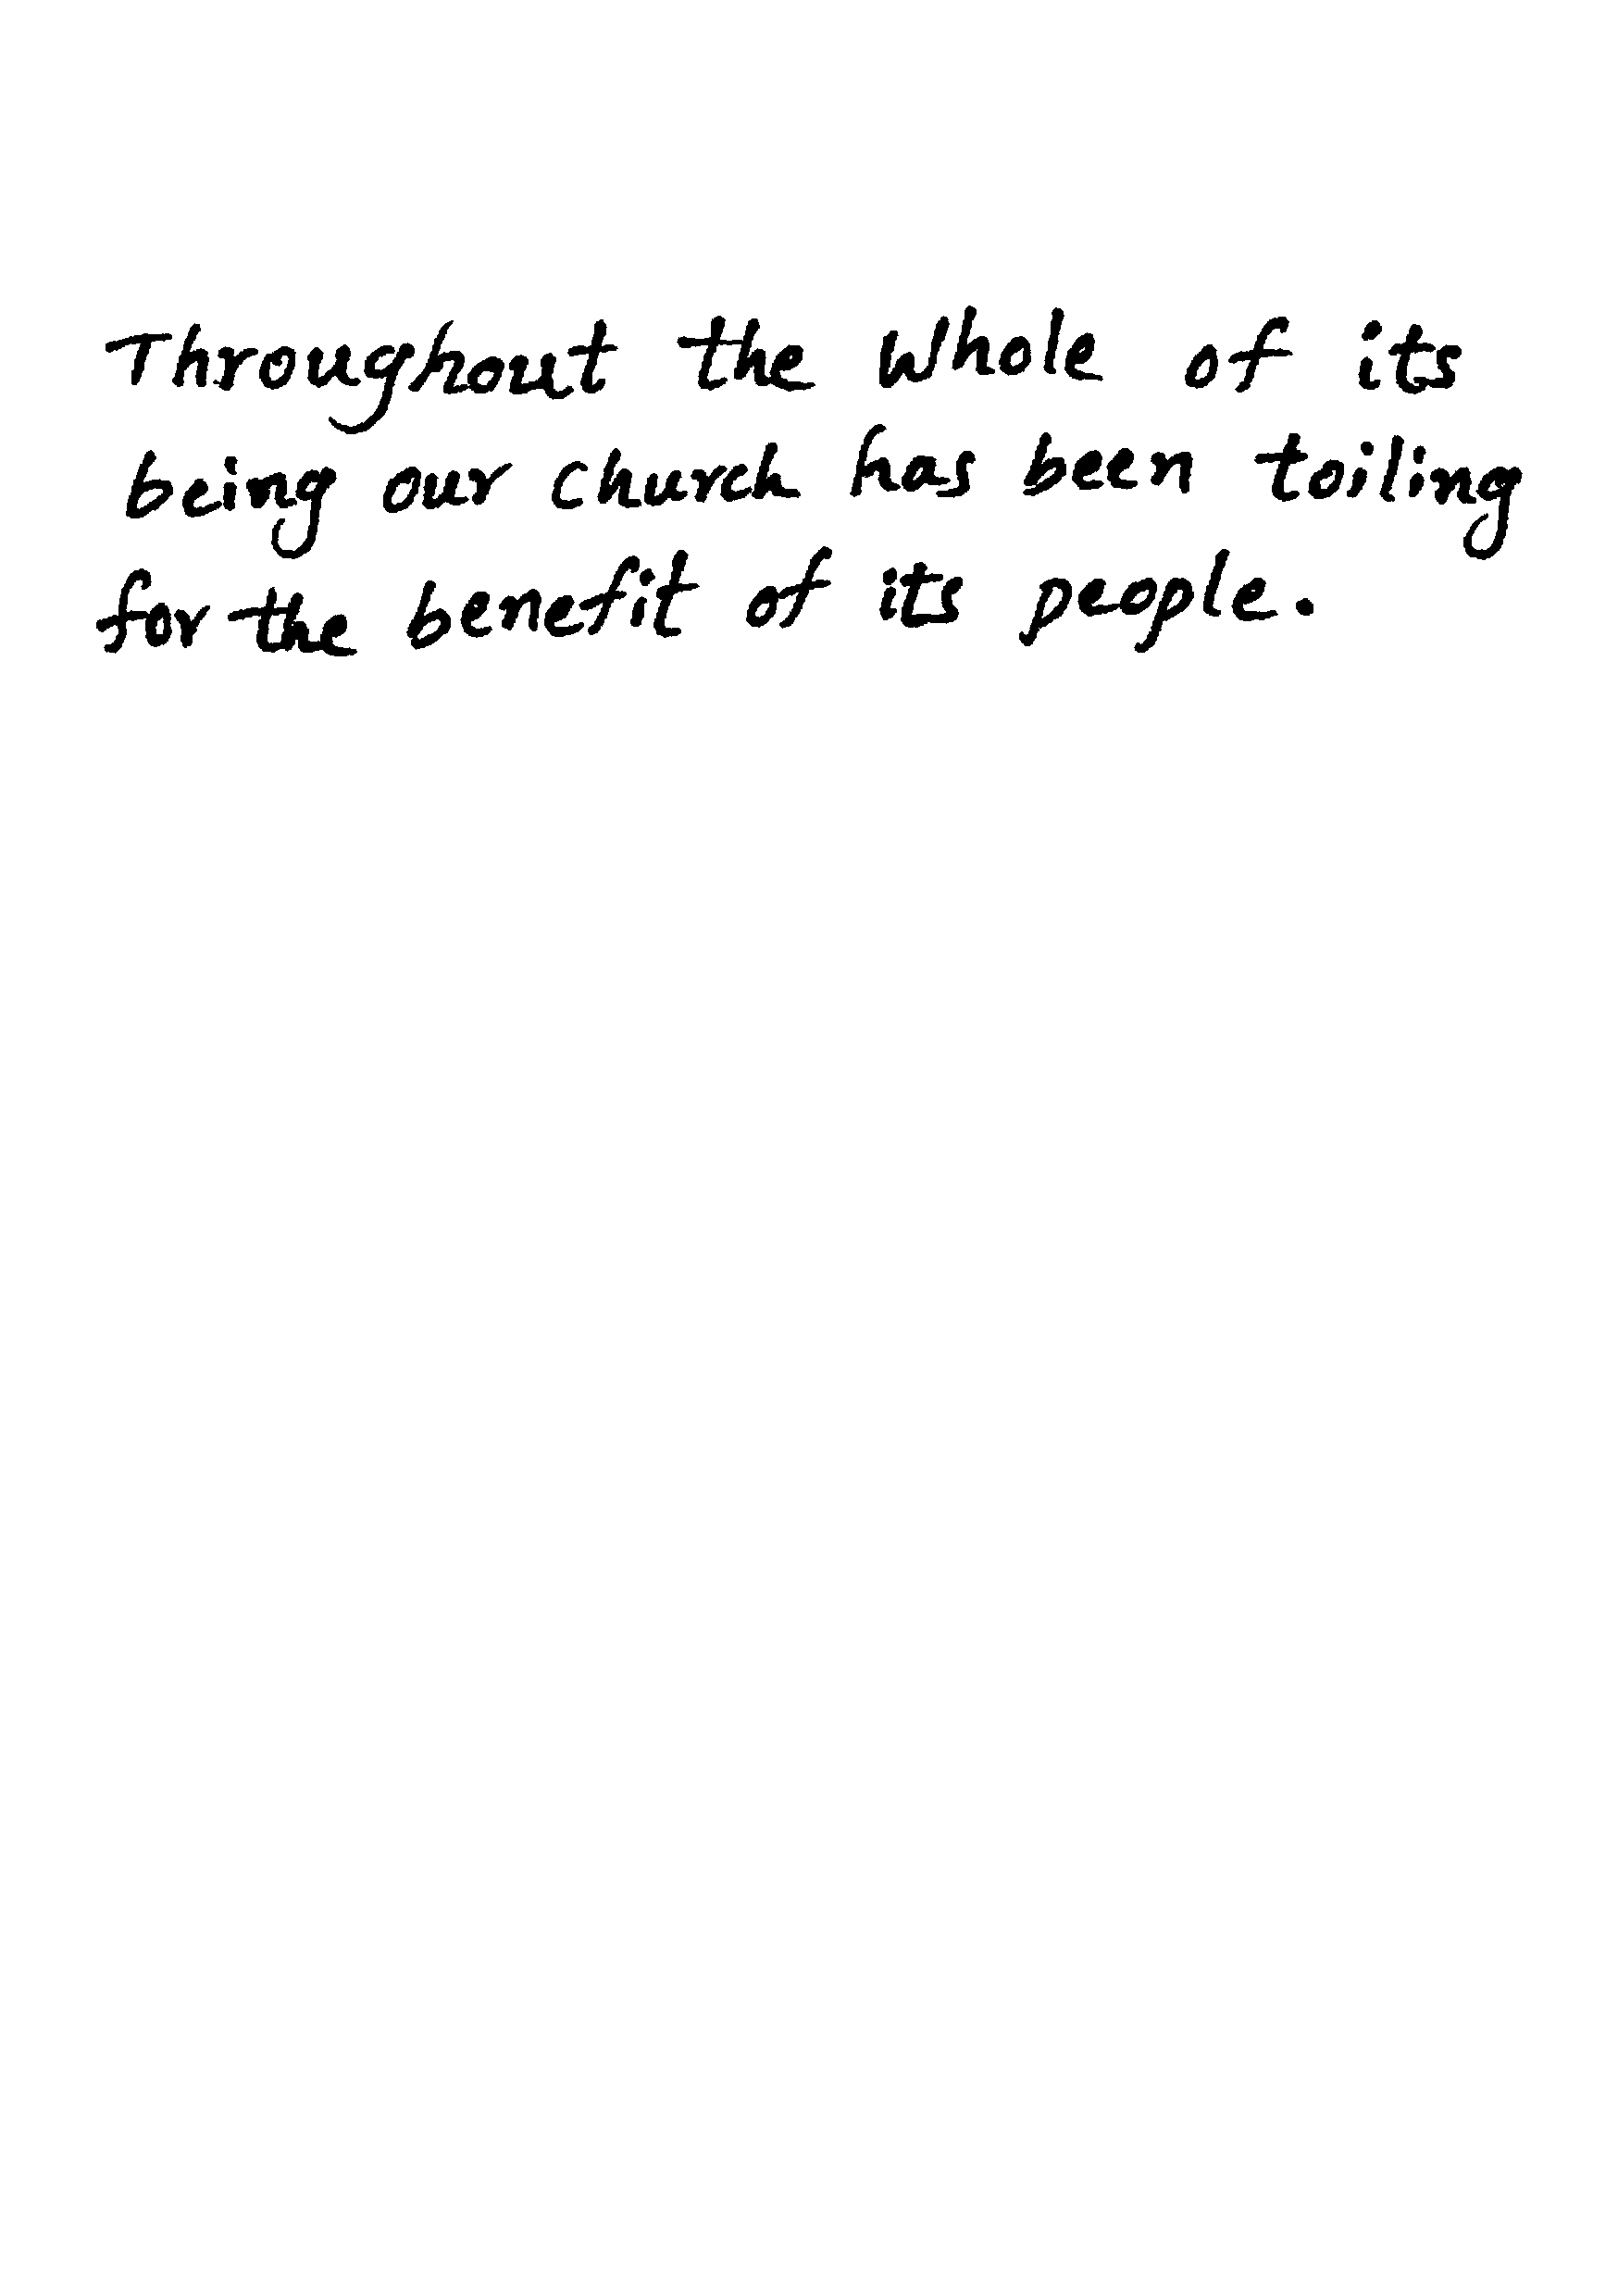 Throughout the whole of its
being our church has been toiling
for the benefit of its people.